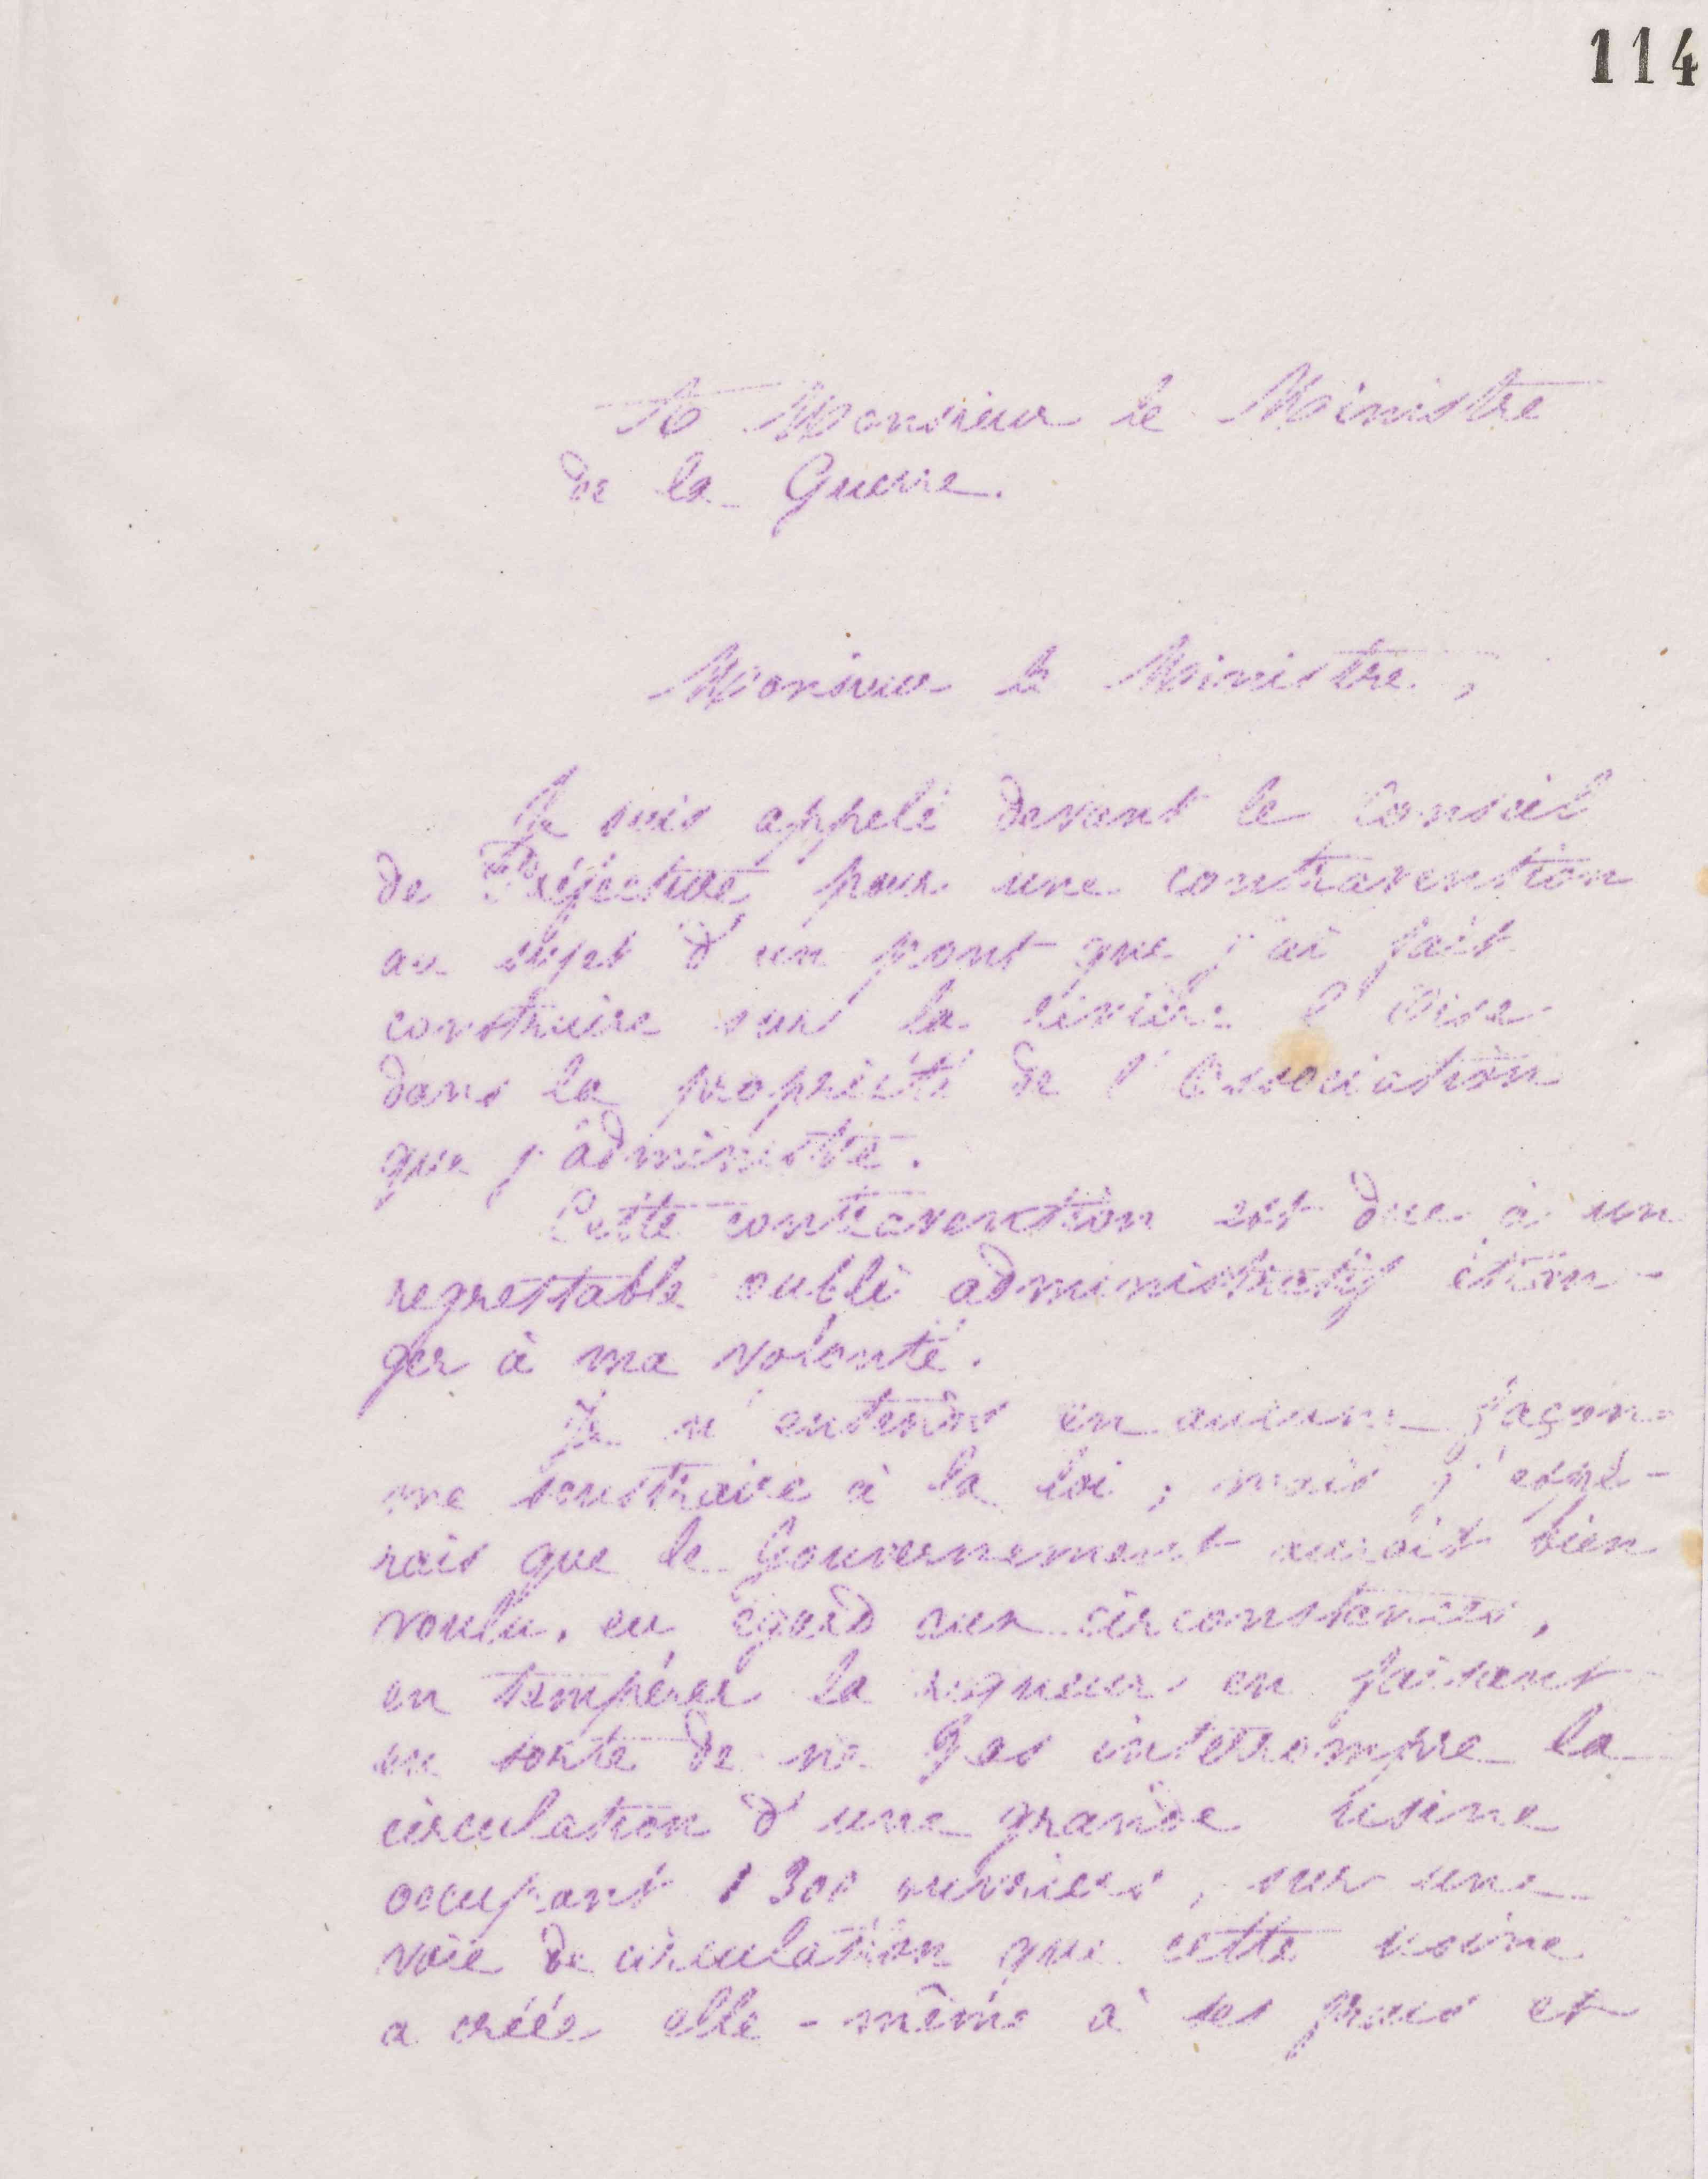 114
A Monsieur le Ministre
de la Guerre.
Monsieur le Ministre,
Je suis appelé devant le Conseil
de Préfecture pour une contravention
au sujet d'un pont que j'ai fait
construire sur la rivière l'Oise
dans la propriété de l'Association
que j'administre.
Cette contravention est due à un
regrettable oubli administratif étran-
ger à ma volonté.
Je n'entends en aucune façon
me soustraire à la loi ; mais j'espé-
rais que le Gouvernement aurait bien
voulu, eu égard aux circonstances,
en tempérer la rigueur en faisant
en sorte de ne pas interrompre la
circulation d'une grande usine
occupant 1300 ouvriers, sur une
voie de circulation que cette usine
a créée elle-même à ses frais et